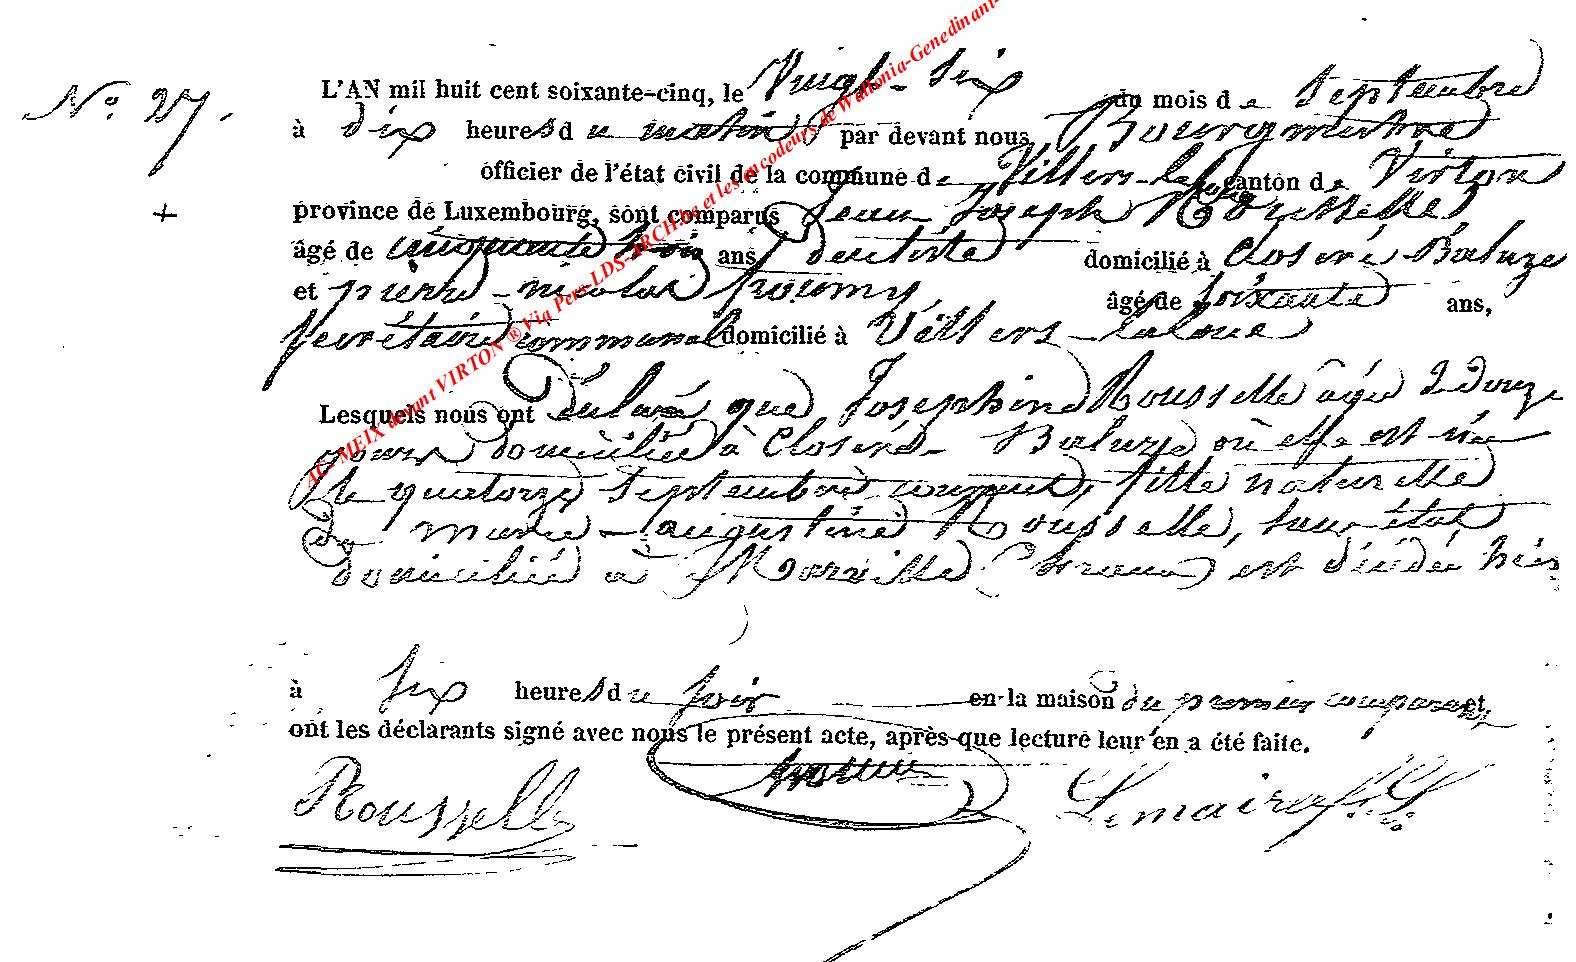 N° 27.
L'AN mil huit cent soixante-cinq, le Vingt-six du mois de Septembre
à dix heures du matin par devant nous Bourgmestre
officier de l'état civil de la commune de Villers-la-loue canton de Virton
province de Luxembourg, sont comparus Jean Joseph Rousselle
âgé de cinquante trois ans, dentiste domicilié à Closéré-Baluze
et pierre-nicolas âgé de soixante ans,
secrétaire communal domicilié à Villers-laloue
Lesquels nous ont déclaré que Josephine Rousselle âgée de douze
jours domiciliée à Closéré-Baluze où elle est née
le quatorze septembre courant, fille naturelle
de marie-augustine Rousselle, sans état
domiciliée à Marville (france) est décédée hier
à six heures du soir en la maison du premier comparant, et
ont les déclarants signé avec nous le présent acte, après que lecture leur en a été faite.
Rousselle Lemaire
AC MEIX devant VIRTON ® Via Pers-LDS-ARCH.be et les encodeurs de Wallonia-Genedinant-